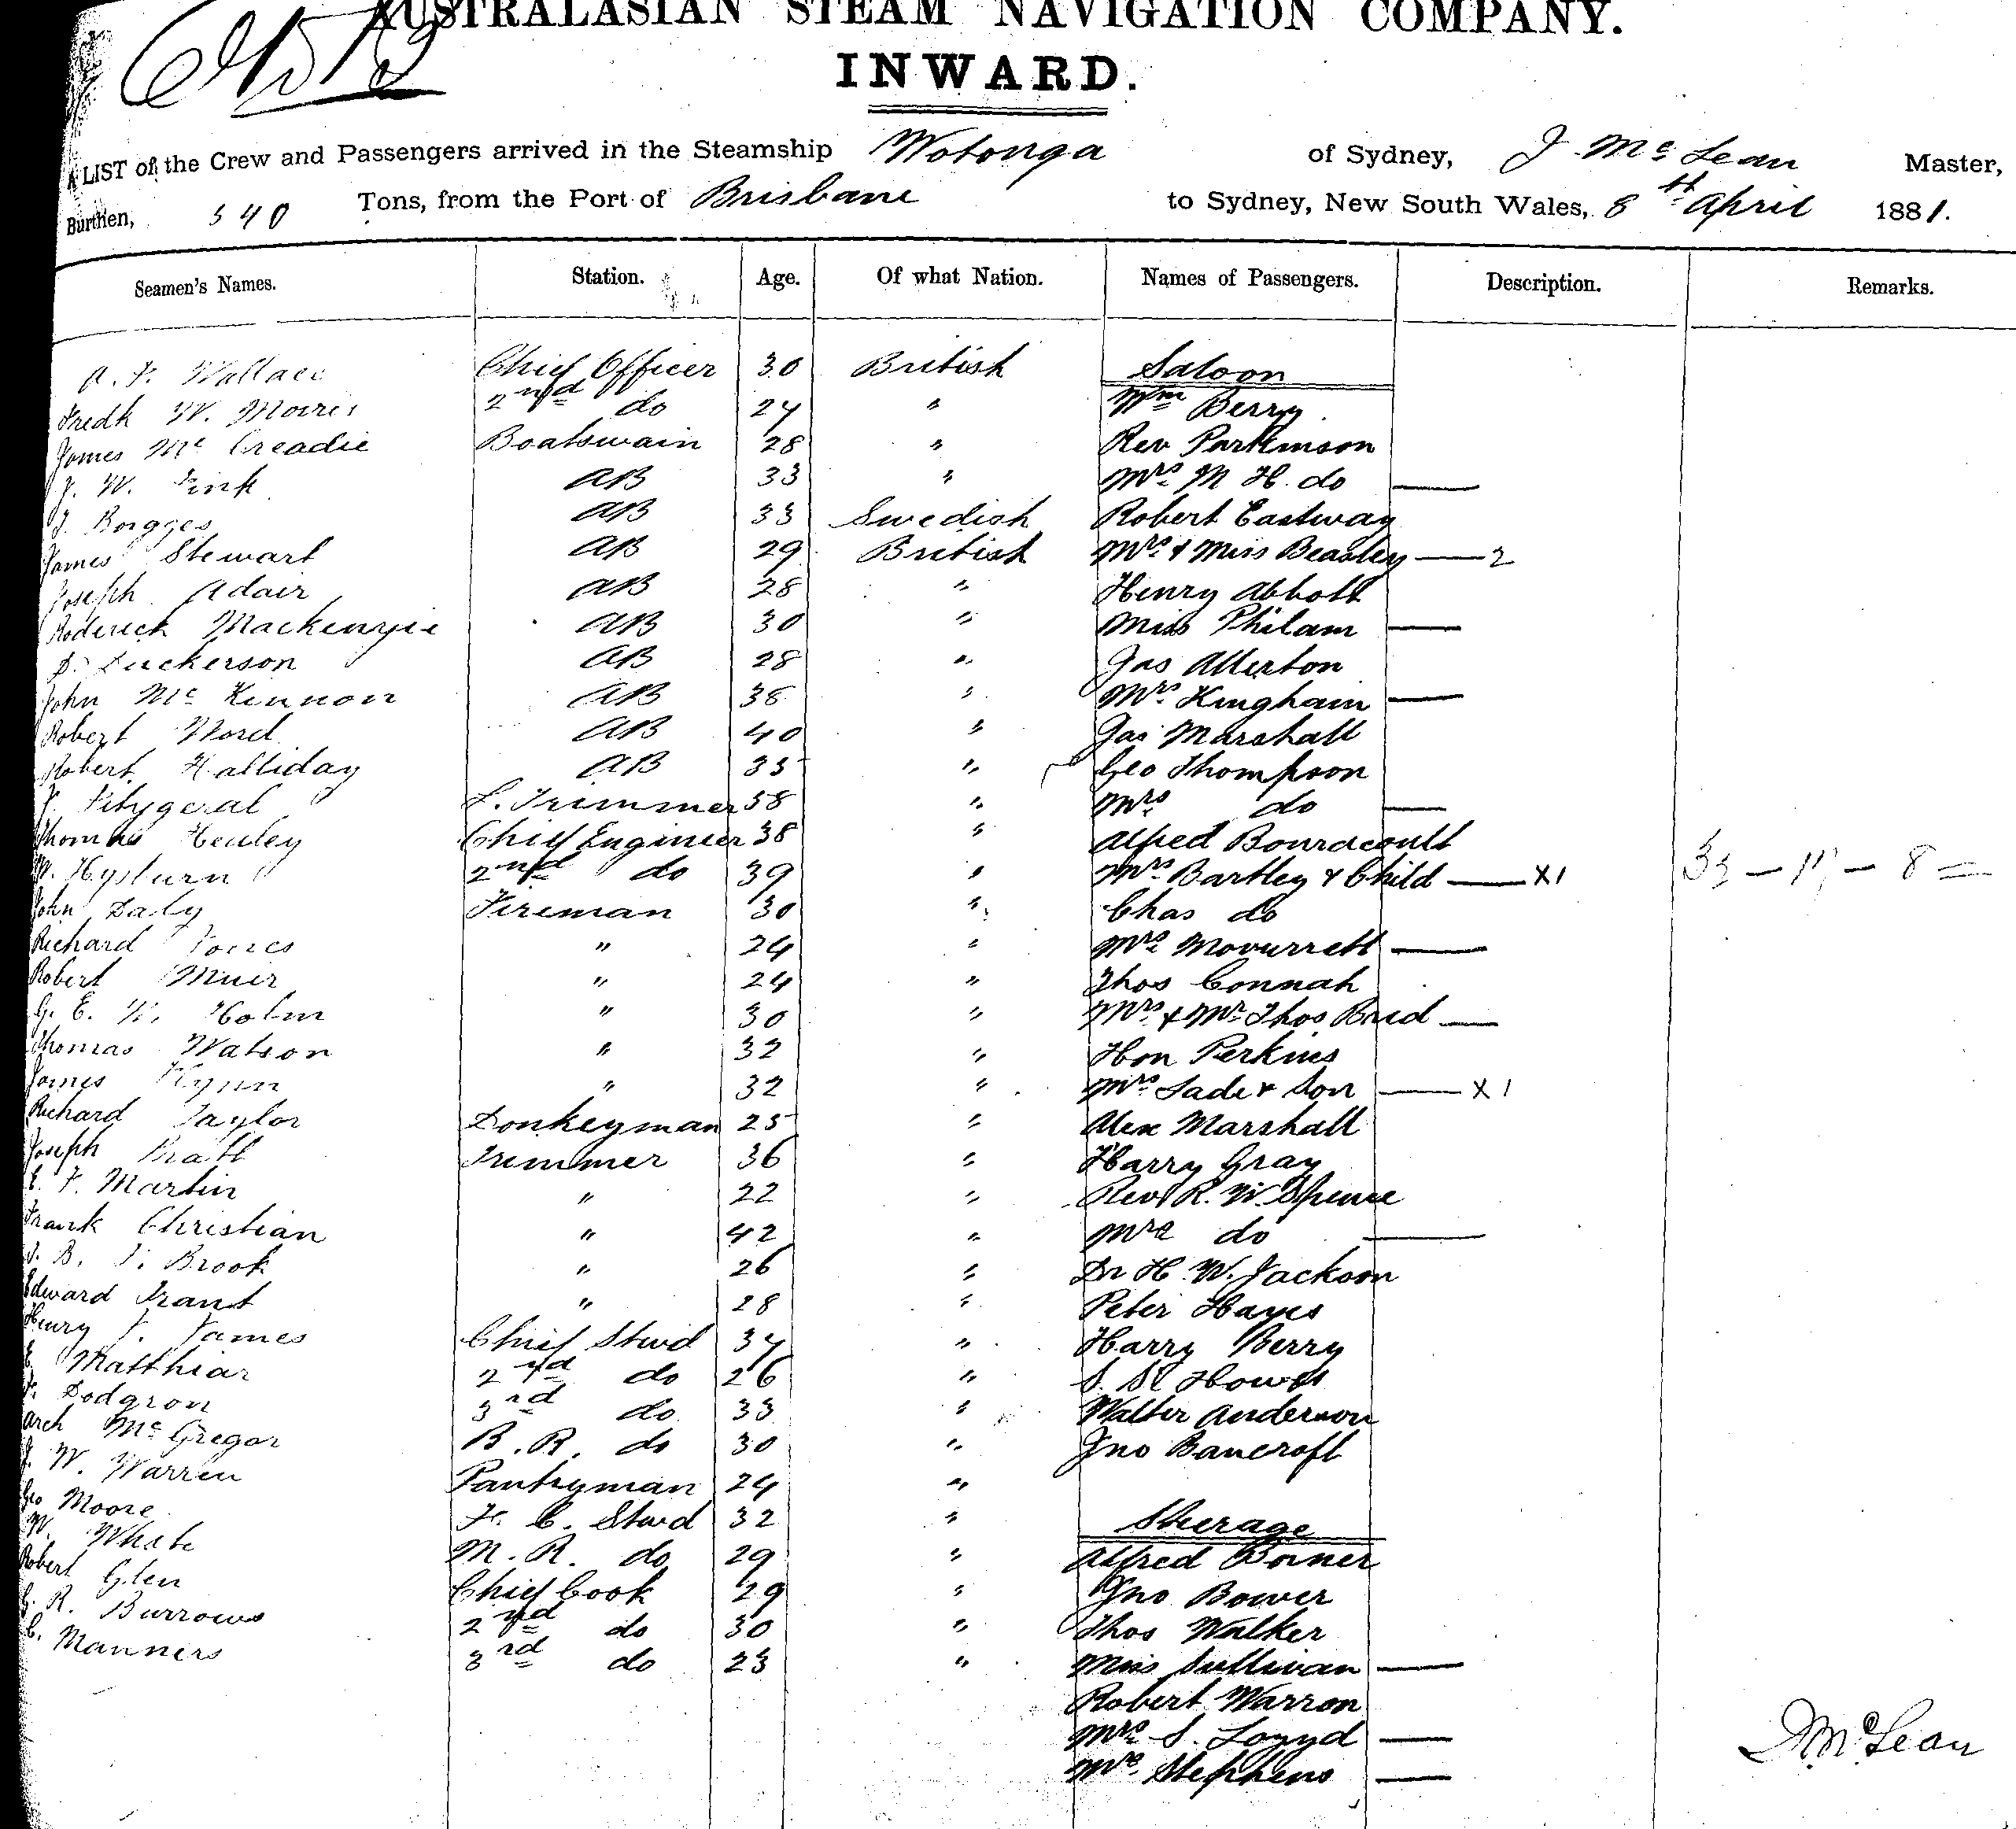 AUSTRALASIAN STEAM NAVIGATION COMPANY.
INWARD.
A LIST of the Crew and Passengers arrived in the Steamship Wotonga of Sydney, J. McLean Master,
Burthen, 540 Tons, from the Port of Brisbane to Sydney, New South Wales, 8th April 1881.
Seamen's Names. Station. Age. Of what Nation. Names of Passengers. Description. Remarks.
A. F. Wallace Chief Officer 30 British Saloon
Fredk W. Morris 2nd do 24 " Wm Berry
James Mc Creadie Boatswain 28 " Rev Parkinson
J. W. Fink AB 33 " Mrs M H. do —
J. Borgges AB 33 Swedish Robert Eastway
James Stewart AB 29 British Mrs & Miss Beasley — 2
Joseph Adair AB 28 " Henry Abbott
Roderick Mackenzie AB 30 " Miss Philam —
D. Luckerson AB 28 " Jas Allerton
John Mc Kennon AB 38 " Mrs Kingham —
Robert Word AB 40 " Jas Marshall
Robert Halliday AB 35 " Geo Thompson
J. Fitzgeral L. Trimmer 38 " Mrs do —
Thomas Henley Chief Engineer 38 " Alfred Bourdcoult
W. Hysturn 2nd do 39 " Mrs Bartley & Child — X1
John Daly Fireman 30 " Chas do
Richard Jones " 24 " Mrs Movurrett —
Robert Muir " 24 " Thos Connah
G. E. Holm " 30 " Mrs & Mr Thos Brid —
Thomas Watson " 32 " Hon Perkins
James Flynn " 32 " Mrs Sade & Son — X1
Richard Taylor Donkeyman 25 " Alex Marshall
Joseph Pratt Trimmer 36 " Harry Gray
F. Martin " 22 " Revd R. W. Spence
Frank Christian " 42 " Mrs do —
B. Brook " 26 " Dr H. W. Jackson
Edward Grant " 28 " Peter Hayes
Henry J. James Chief Stwd 34 " Harry Berry
Matthiar 2nd do 26 " S. St Howes
Dodgson 3rd do 33 " Walter Anderson
Arch McGregor B. R. do 30 " Jno Bancroft
J. W. Warren Pantryman 24 "
Geo Moore F. C. Stwd 32 " Steerage
W. White M. R. do 29 " Alfred Borner
Robert Glen Chief Cook 29 " Jno Bower
G. R. Burrows 2nd do 30 " Thos Walker
C. Manners 3rd do 23 " Miss Sullivan —
Robert Warron
Mrs S. Loyyd —
Mrs Stephens —
33 — 11 — 8 =
J McLean